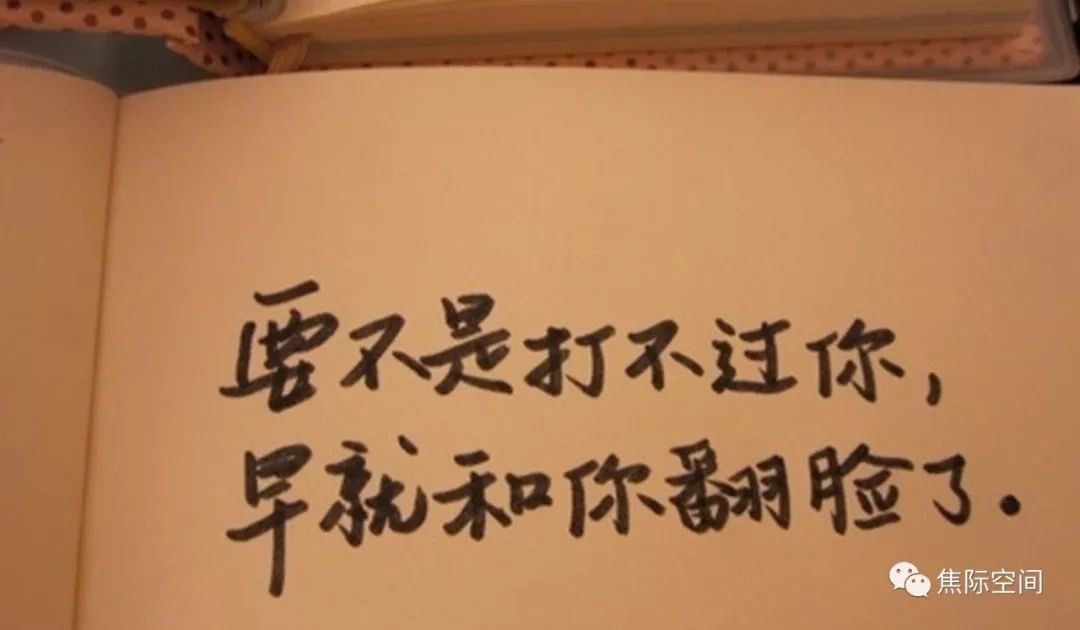 要不是打不过你，
早就和你翻脸了.
焦际空间